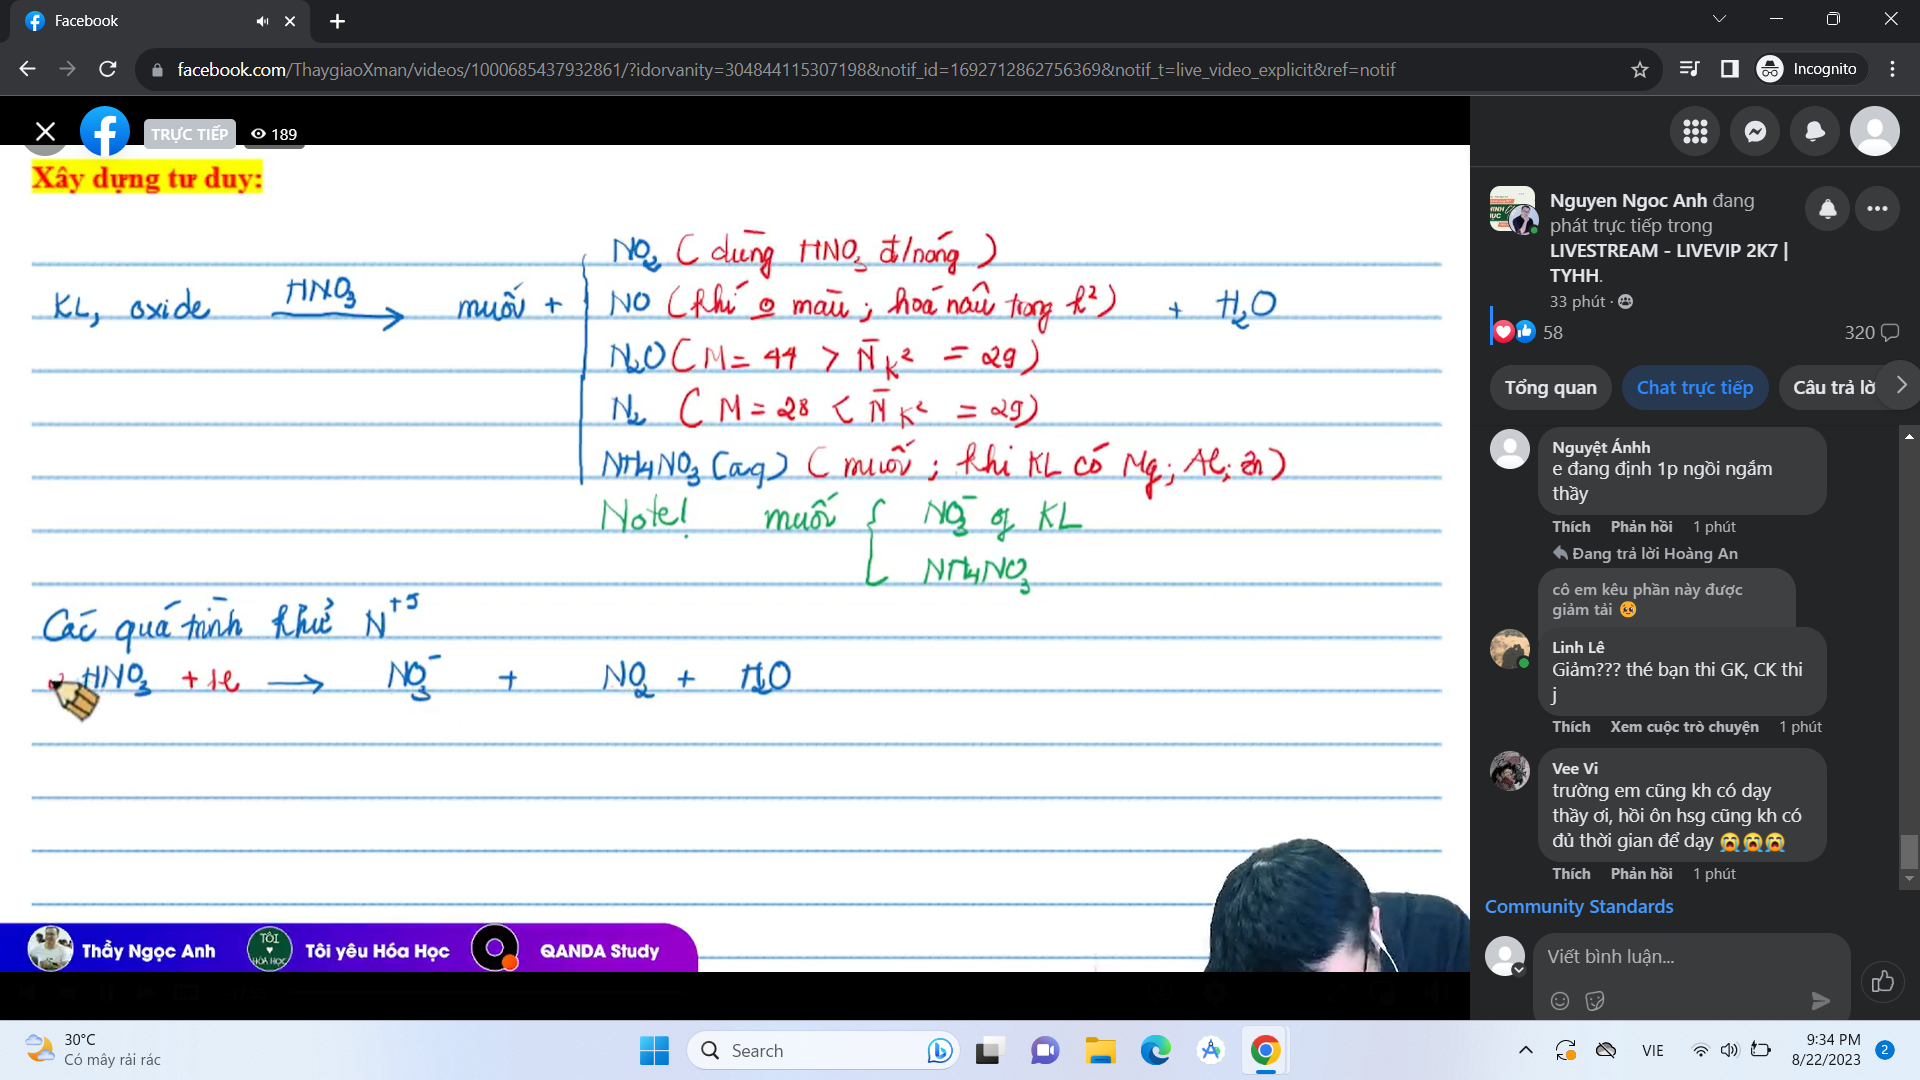 Facebook
facebook.com/ThaygiaoXman/videos/1000685437932861/?idorvanity=304844115307198&notif_id=1692712862756369&notif_t=live_video_explicit&ref=notif
Incognito
TRỰC TIẾP
189
Xây dựng tư duy:
NO₂ (dùng HNO₃ đ/nóng)
KL, oxide HNO₃ → muối + NO (khí o màu; hoá nâu trong k²) + H₂O
N₂O (M = 44 > M̄ K² = 29)
N₂ (M = 28 < M̄ K² = 29)
NH₄NO₃ (aq) (muối; khi KL có Mg; Al; Zn)
Note! muối { NO₃⁻ of KL
NH₄NO₃
Các quá trình khử N⁺⁵
HNO₃ +1e → NO₃⁻ + NO₂ + H₂O
Thầy Ngọc Anh
TÔI ♥ HÓA HỌC
Tôi yêu Hóa Học
QANDA Study
Nguyen Ngoc Anh đang
phát trực tiếp trong
LIVESTREAM - LIVEVIP 2K7 |
TYHH.
33 phút ·
58
320
Tổng quan
Chat trực tiếp
Câu trả lờ
Nguyệt Ánhh
e đang định 1p ngồi ngắm
thầy
Thích Phản hồi 1 phút
Đang trả lời Hoàng An
cô em kêu phần này được
giảm tải 😢
Linh Lê
Giảm??? thé bạn thi GK, CK thi
j
Thích Xem cuộc trò chuyện 1 phút
Vee Vi
trường em cũng kh có dạy
thầy ơi, hồi ôn hsg cũng kh có
đủ thời gian để dạy 😭😭😭
Thích Phản hồi 1 phút
Community Standards
Viết bình luận...
30°C
Có mây rải rác
Search
VIE
9:34 PM
8/22/2023
2